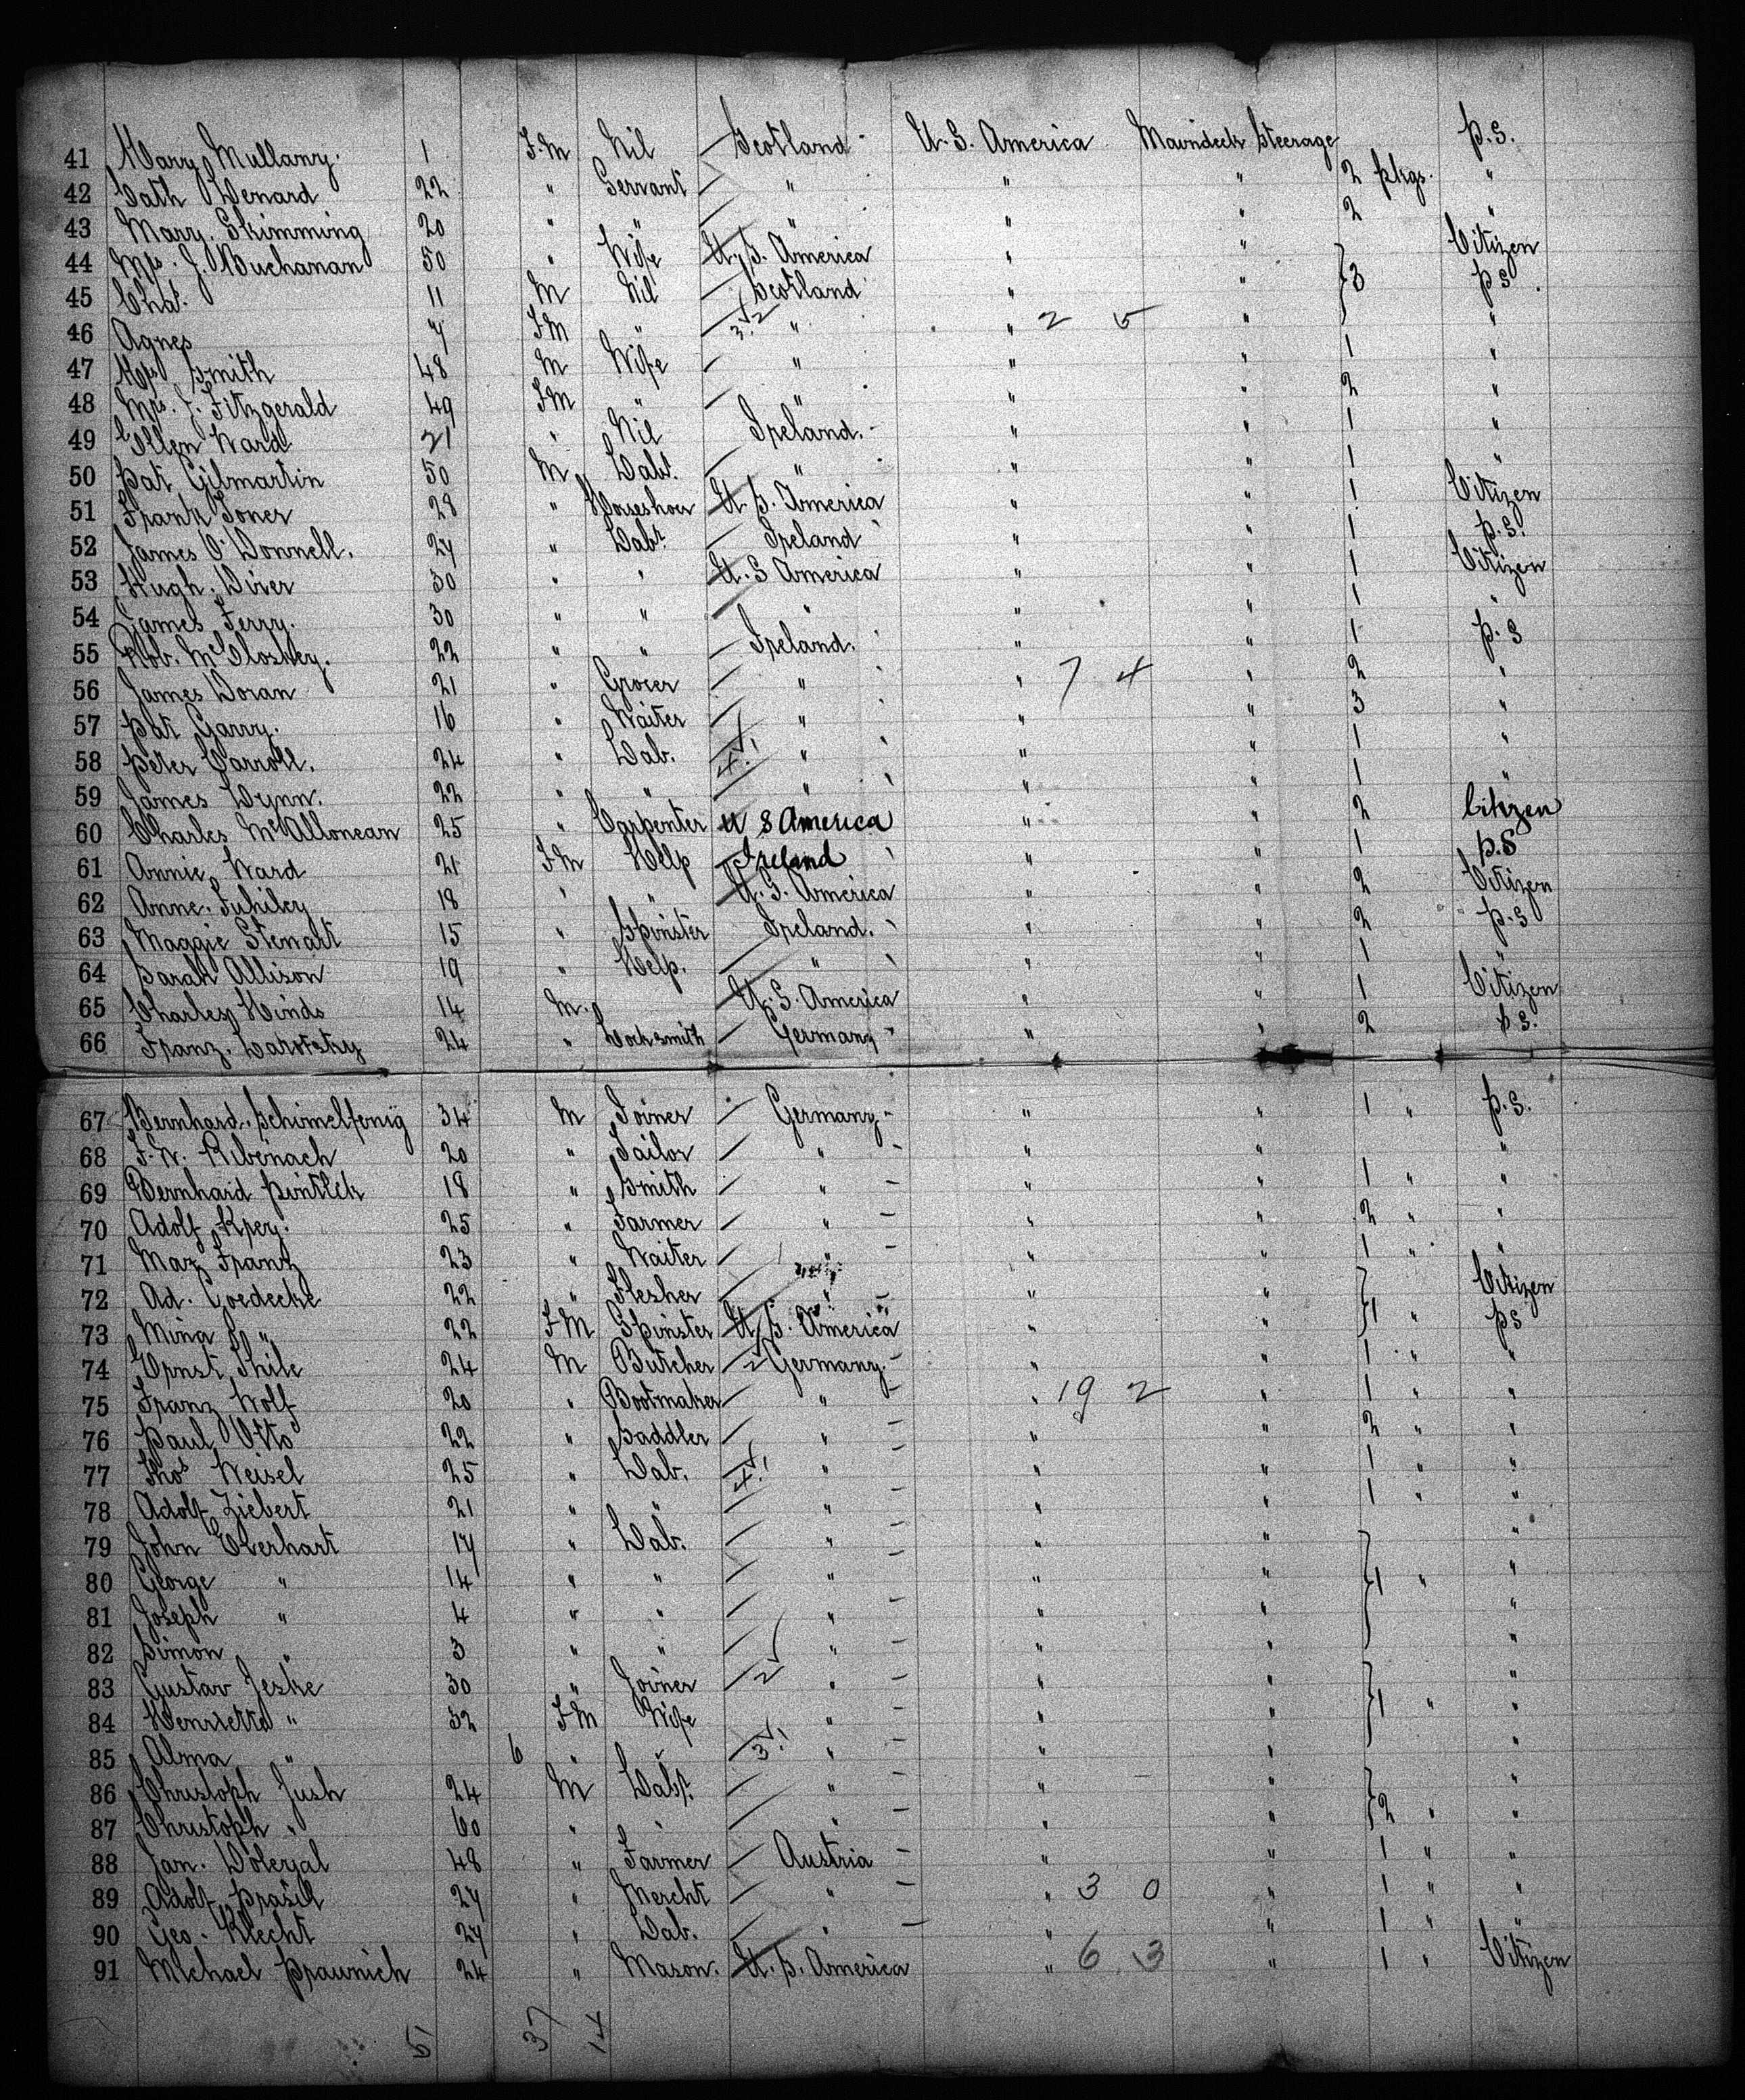 41 Mary Mullany. 1 F.M Nil Scotland U.S. America Maindeck Steerage p.S.
42 Cath Lenard 22 " Servant " " " 2 pkgs. "
43 Mary Skimming 20 " " " " " 2 "
44 Mrs. J. Buchanan 50 " Wife U.S. America " " Citizen
45 Chas. 11 M Nil Scotland " " 3 pS.
46 Agnes 7 FM " " " 2 5 " "
47 Mrs Smith 48 M Wife " " " 1 "
48 Mrs. J. Fitzgerald 49 FM " " " " 2 "
49 Ellen Ward 21 " Nil Ireland. " " 1 "
50 Pat Gilmartin 50 M Labr. " " " 1 "
51 Frank Toner 28 " Horseshoer U.S. America " " 1 Citizen
52 James O'Donnell. 24 " Labr. Ireland " " 1 p.S.
53 Hugh. Diver 30 " " U.S America " " 1 Citizen
54 James Ferry. 30 " " " " " 1 "
55 Rob. McCloskey. 22 " " Ireland. " " 1 p.S
56 James Doran 21 " Grocer " " 7 4 " 2 "
57 Pat Garry. 16 " Waiter " " " 3 "
58 Peter Carroll. 24 " Lab. 4.1 " " " 1 "
59 James Lynn. 22 " " " " " 1 "
60 Charles 25 " Carpenter U S America " " 2 Citizen
61 Annie Ward 21 FM Help Ireland " " 1 p.S
62 Anne. 18 " " U.S. America " " 2 Citizen
63 Maggie Stewart 15 " Spinster Ireland. " " 2 p.S
64 Sarah Allison 19 " Help. " " " 1 "
65 Charles Hinds 14 M. U.S. America " " 1 Citizen
66 Franz. 24 " Locksmith Germany " " 2 p.S.
67 Bernhard. Schimelfenig 34 M Joiner Germany " " 1 " p.S.
68 F.W. Ribenach 20 " Tailor " " " "
69 Bernhard 18 " Smith " " " 1 " "
70 Adolf 25 " Farmer " " " 2 " "
71 Max Frantz 23 " Waiter " " " 1 " "
72 Ad. Goedecke 22 " Flesher " " " Citizen
73 Mina " 22 FM Spinster U.S. America " " 1 " pS
74 Ernst Thile 24 M Butcher Germany. " " 1 " "
75 Franz Wolf 20 " Bootmaker " " 19 2 " 1 " "
76 Paul Otto 22 " Saddler " " " 2 " "
77 Thos Weisel 25 " Lab. 4.1 " " " 1 " "
78 Adolf Ziebert 21 " " " " " 1 " "
79 John Everhart 17 " Lab. " " " "
80 George " 14 " " " " " 1 " "
81 Joseph " 4 " " " " " "
82 Simon " 3 " " " " " "
83 Gustav Jeske 30 " Joiner 2 " " " "
84 Henrietta " 32 FM Wife " " " 1 " "
85 Alma " 6 " " 3.1 " " " "
86 Christoph Jush 24 M Labr. " " " "
87 Christoph " 60 " " " " " 2 " "
88 Jan. Dolezal 48 " Farmer Austria " " 1 " "
89 Adolf Prasil 24 " Mercht " " 3 0 " 1 " "
90 Geo. Klecht 24 " Lab. " " " 1 " "
91 Michael Prawnich 24 " Mason. U.S. America " 6 3 " 1 " Citizen
5 37 14